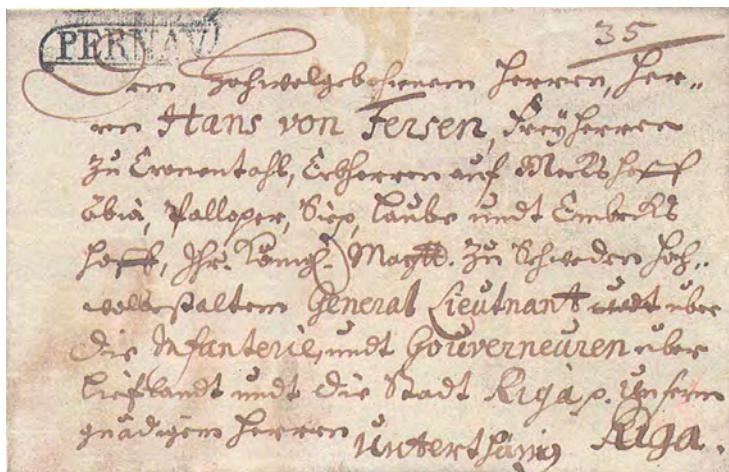 PERNAV
35
Dem Hochwolgebohrnem Herren, Her„
ren Hans von Fersen, Freyherren
zu Cronentahl, Erbherren auf Merkshoff
Abia, Palloper, Siep, Laube undt Embecks
hoff, Ihr. Königl. Maytt. zu Schweden Hoch„
wolbestaltem General Lieutnant undt über
die Infanterie, undt Gouverneuren über
Liefflandt undt die Stadt Riga p. Unserm
gnädigem Herren
Unterthänig Riga.